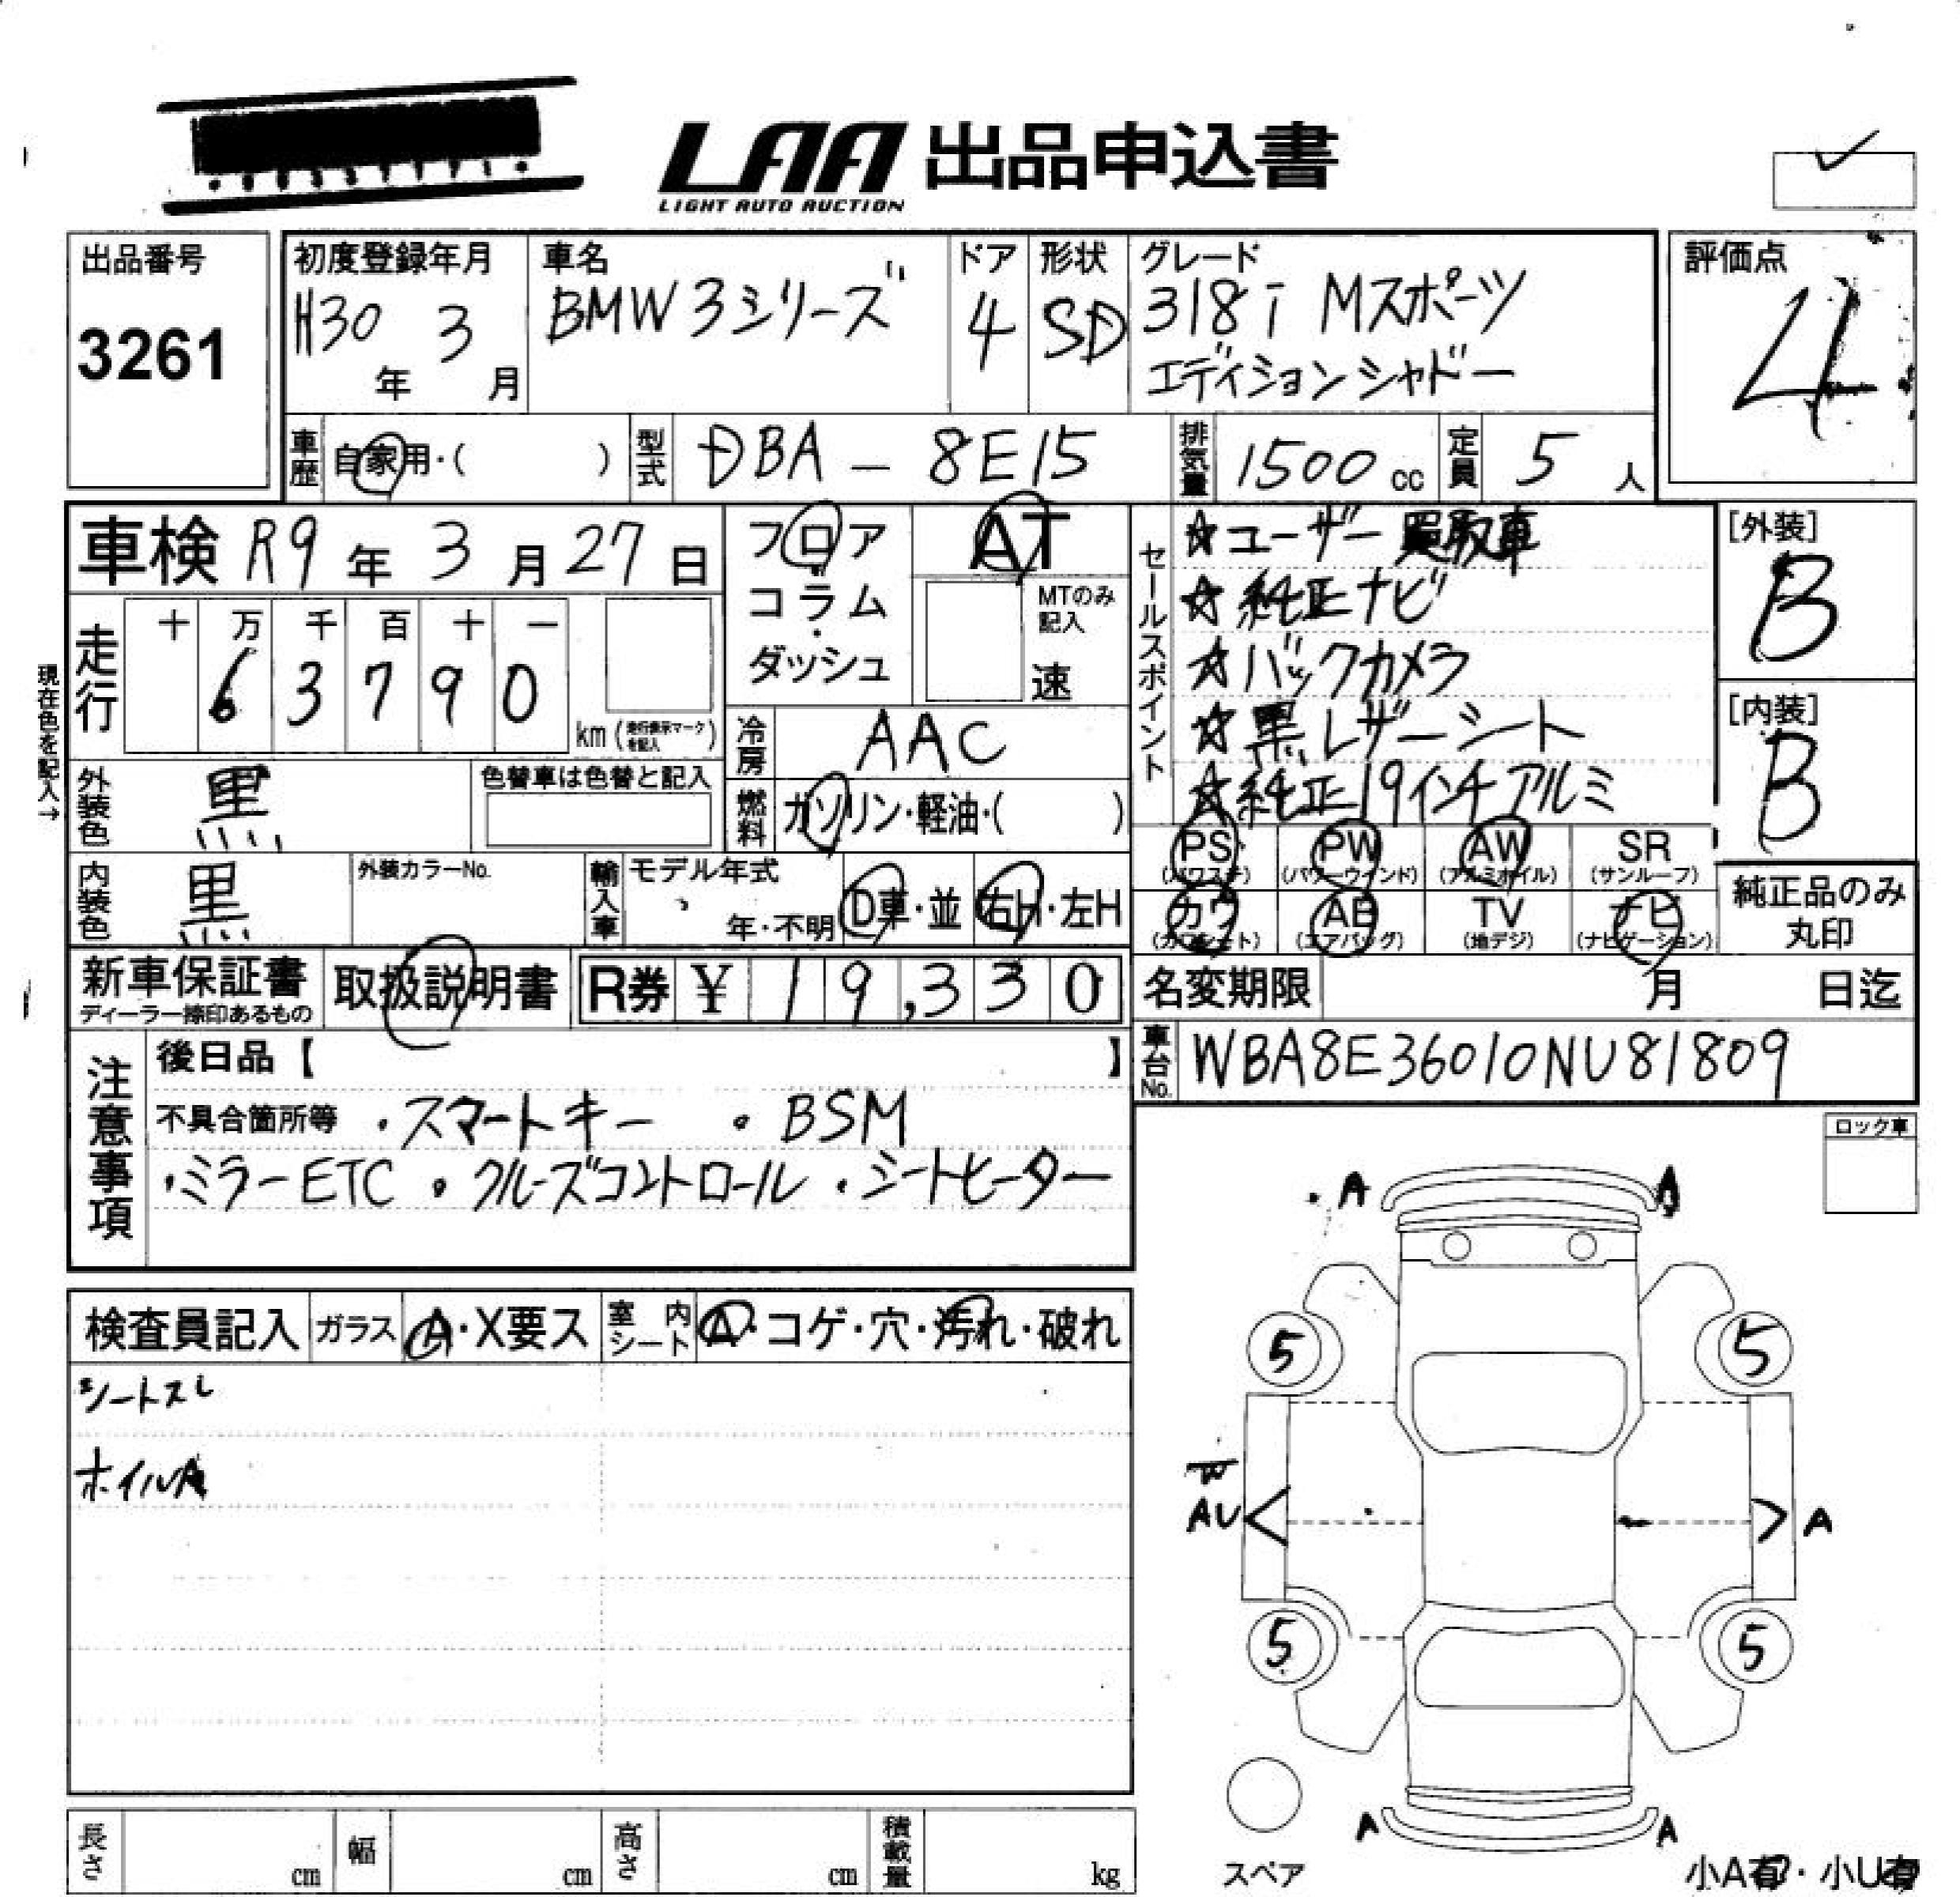 LAA 出品申込書
LIGHT AUTO AUCTION
出品番号
3261
初度登録年月
H30年 3月
車名
BMW 3シリーズ
ドア
4
形状
SD
グレード
318i Mスポーツ
エディションシャドー
評価点
4
車歴 自家用・( )
型式 DBA - 8E15
排気量 1500 cc
定員 5 人
車検 R9年 3月 27日
フロア
コラム
・
ダッシュ
AT
MTのみ
記入
速
セールスポイント
☆ユーザー買取車
☆純正ナビ
☆バックカメラ
☆黒レザーシート
☆純正19インチアルミ
[外装]
B
[内装]
B
現在色を記入→
走行
十 万 千 百 十 一
6 3 7 9 0
km (走行表示マークを記入)
冷房 AAC
外装色 黒
色替車は色替と記入
燃料 ガソリン・軽油・( )
PS (パワステ)
PW (パワーウインド)
AW (アルミホイル)
SR (サンルーフ)
カワ (カワシート)
AB (エアバッグ)
TV (地デジ)
ナビ (ナビゲーション)
純正品のみ
丸印
内装色 黒
外装カラーNo.
輸入車 モデル年式
年・不明
D車・並
右H・左H
新車保証書
ディーラー捺印あるもの
取扱説明書
R券 ¥ 19,330
名変期限 月 日迄
車台No. WBA8E36010NU81809
注意事項
後日品【 】
不具合箇所等 ・スマートキー ・BSM
・ミラーETC ・クルーズコントロール ・シートヒーター
ロック車
検査員記入
ガラス A・X要ス
室内シート A・コゲ・穴・汚れ・破れ
シートスレ
ホイルA
A A
5 5
W
AU A
5 5
A A
スペア
小A有・小U有
長さ cm
幅 cm
高さ cm
積載量 kg